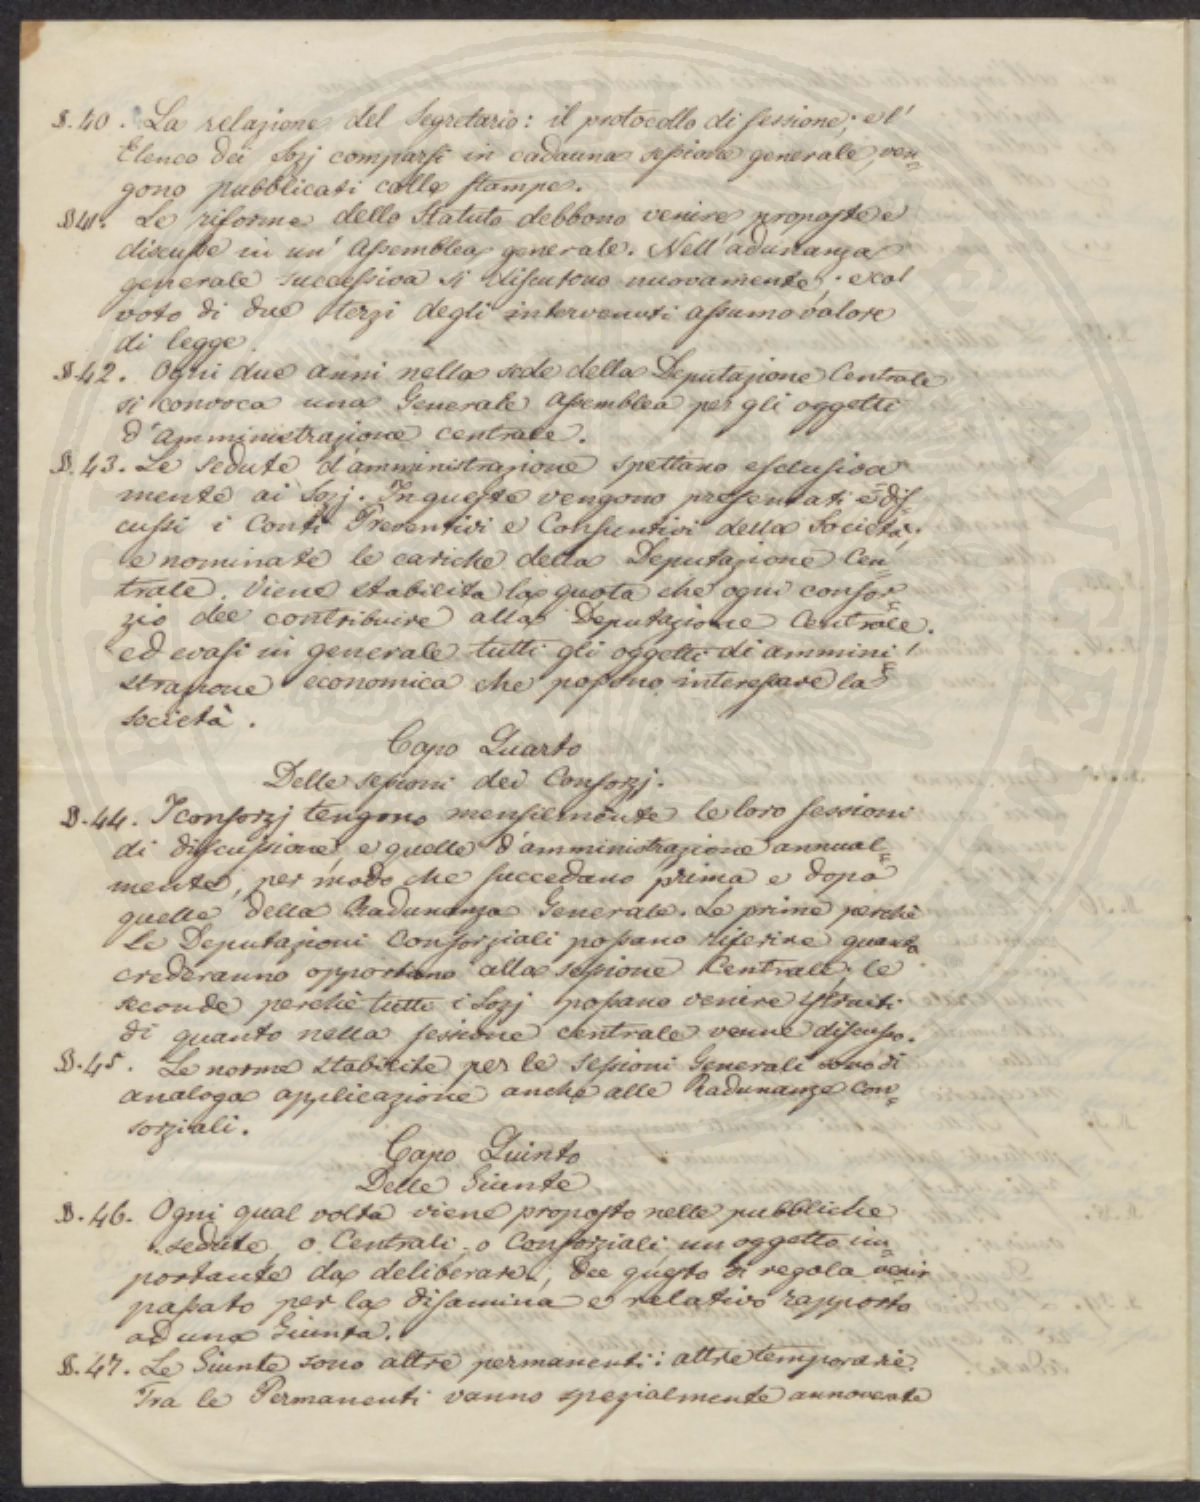 §. 40. La relazione del Segretario: il protocollo di sessione; e l'
Elenco dei Sozj comparsi in cadauna sessione generale, ven=
gono pubblicati colle stampe.
§ 41. Le riforme dello Statuto debbono venire proposte e
discusse in un' Assemblea generale. Nell'adunanza
generale successiva si discutono nuovamente; e col
voto di due terzi degli intervenuti assumo valore
di legge.
§. 42. Ogni due anni nella sede della Deputazione Centrale
si convoca una Generale Assemblea per gli oggetti
d'amministrazione centrale.
§. 43. Le sedute d'amministrazione spettano esclusiva
mente ai Sozj. In queste vengono presentati e dis=
cussi i Conti Preventivi e Consuntivi della Società;
e nominate le cariche della Deputazione Cen=
trale. Viene stabilita la quota che ogni consor=
zio dee contribuire alla Deputazione Centrale.
ed evasi in generale tutti gli oggetti di ammini=
strazione economica che possono interessare la
società.
Capo Quarto
Delle sessioni dei Consorzj.
§. 44. I consorzj tengono mensilmente le loro sessioni
di discussione, e quelle d'amministrazione annual=
mente, per modo che succedano prima e dopo
quelle della Radunanza Generale. Le prime perchè
le Deputazioni Consorziali possano riferire quanto
crederanno opportuno alla sessione Centrale; le
seconde perchè tutti i Sozj possano venire istruiti
di quanto nella sessione centrale venne discusso.
§. 45. Le norme stabilite per le sessioni Generali sono di
analoga applicazione anche alle Radunanze Con=
sorziali.
Capo Quinto
Delle Giunte
§. 46. Ogni qual volta viene proposto nelle pubbliche
sedute, o Centrali, o Consorziali un oggetto im=
portante da deliberare, dee questo di regola venir
passato per la disamina e relativo rapporto
ad una Giunta.
§. 47. Le Giunte sono altre permanenti: altre temporarie.
Tra le Permanenti vanno spezialmente annoverate